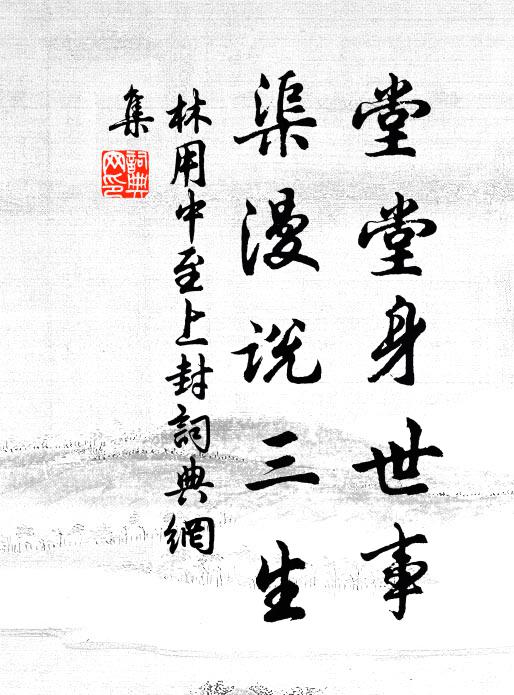 堂堂身世事
渠漫説三生
林用中至上封詞典網
集
詞典網印